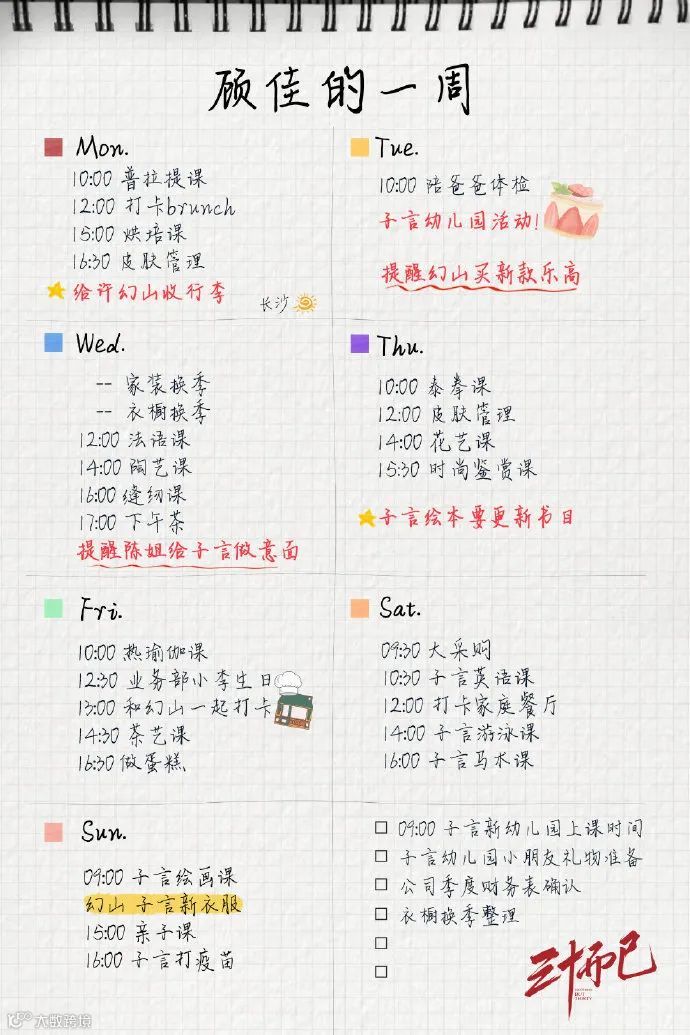 顾佳的一周
Mon.
10:00 普拉提课
12:00 打卡brunch
15:00 烘培课
16:30 皮肤管理
给许幻山收行李
长沙
Tue.
10:00 陪爸爸体检
子言幼儿园活动!
提醒幻山买新款乐高
Wed.
-- 家装换季
-- 衣橱换季
12:00 法语课
14:00 陶艺课
16:00 缝纫课
17:00 下午茶
提醒陈姐给子言做意面
Thu.
10:00 泰拳课
12:00 皮肤管理
14:00 花艺课
15:30 时尚鉴赏课
子言绘本要更新书目
Fri.
10:00 热瑜伽课
12:30 业务部小李生日
13:00 和幻山一起打卡
14:30 茶艺课
16:30 做蛋糕
Sat.
09:30 大采购
10:30 子言英语课
12:00 打卡家庭餐厅
14:00 子言游泳课
16:00 子言马术课
Sun.
09:00 子言绘画课
幻山 子言新衣服
15:00 亲子课
16:00 子言打疫苗
09:00 子言新幼儿园上课时间
子言幼儿园小朋友礼物准备
公司季度财务表确认
衣橱换季整理
三十而已
NOTHING
BUT
THIRTY
大数跨境